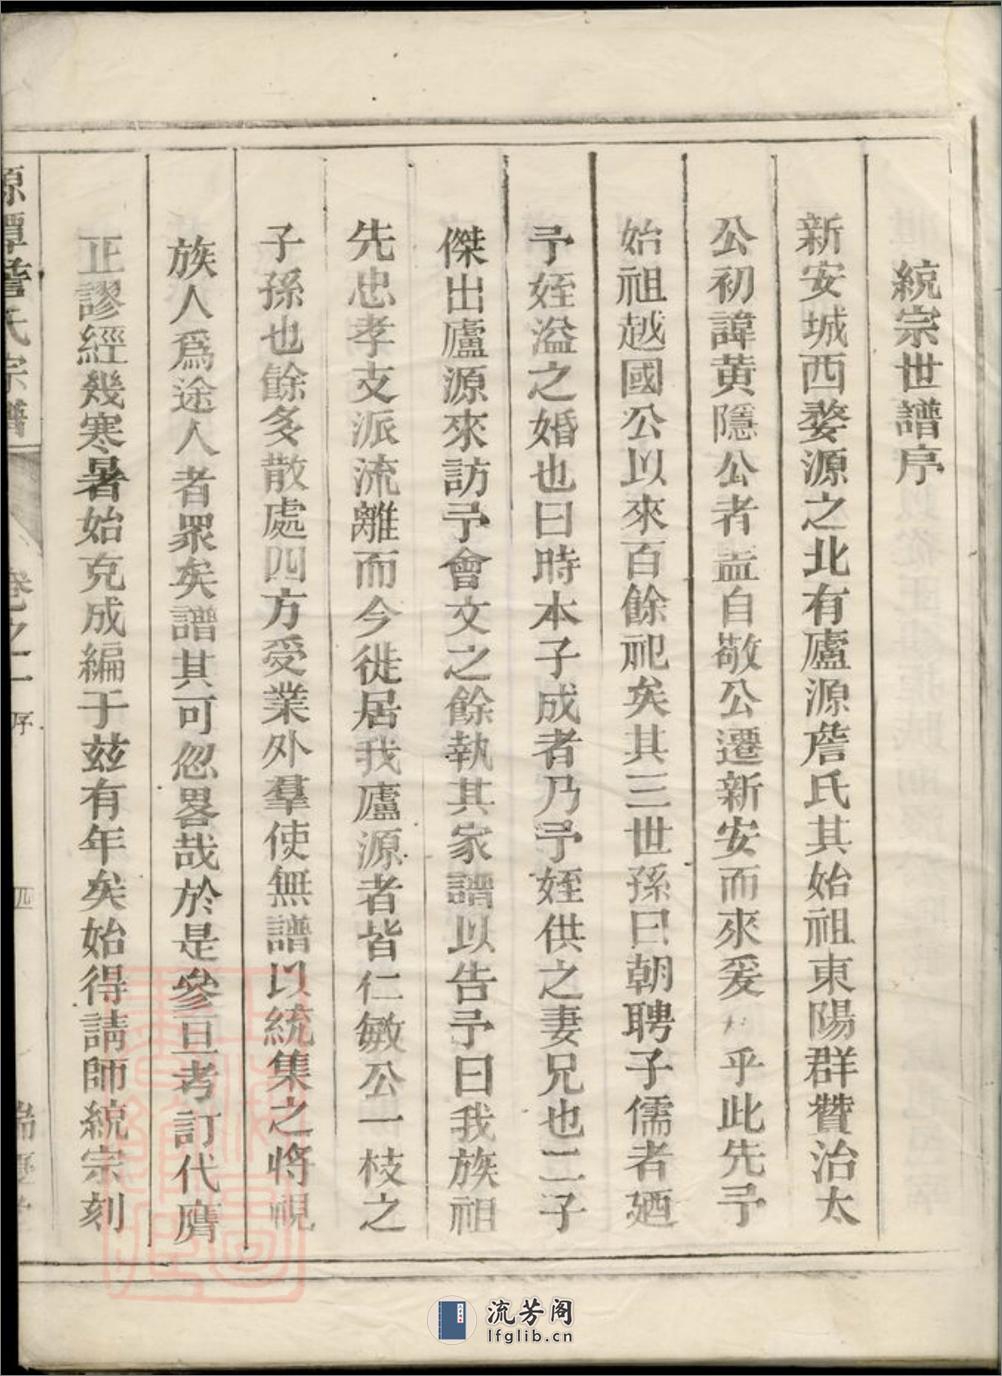 統宗世譜序
新安城西婺源之北有廬源詹氏其始祖東陽群贊治太
公初諱黄隱公者盖自敬公遷新安而來爰乎此先予
始祖越國公以來百餘祀矣其三世孫曰朝聘子儒者廼
予姪溢之婚也曰時本子成者乃予姪供之妻兄也二子
傑出廬源來訪予會文之餘執其家譜以告予曰我族祖
先忠孝支派流離而今徙居我廬源者皆仁敏公一枝之
子孫也餘多散處四方受業外羣使無譜以統集之將視
族人爲途人者眾矣譜其可忽畧哉於是參互考訂代膺
正謬經幾寒暑始克成編于兹有年矣始得請師統宗刻
源潭詹氏宗譜
卷之一
序
四
流芳阁
lfglib.cn